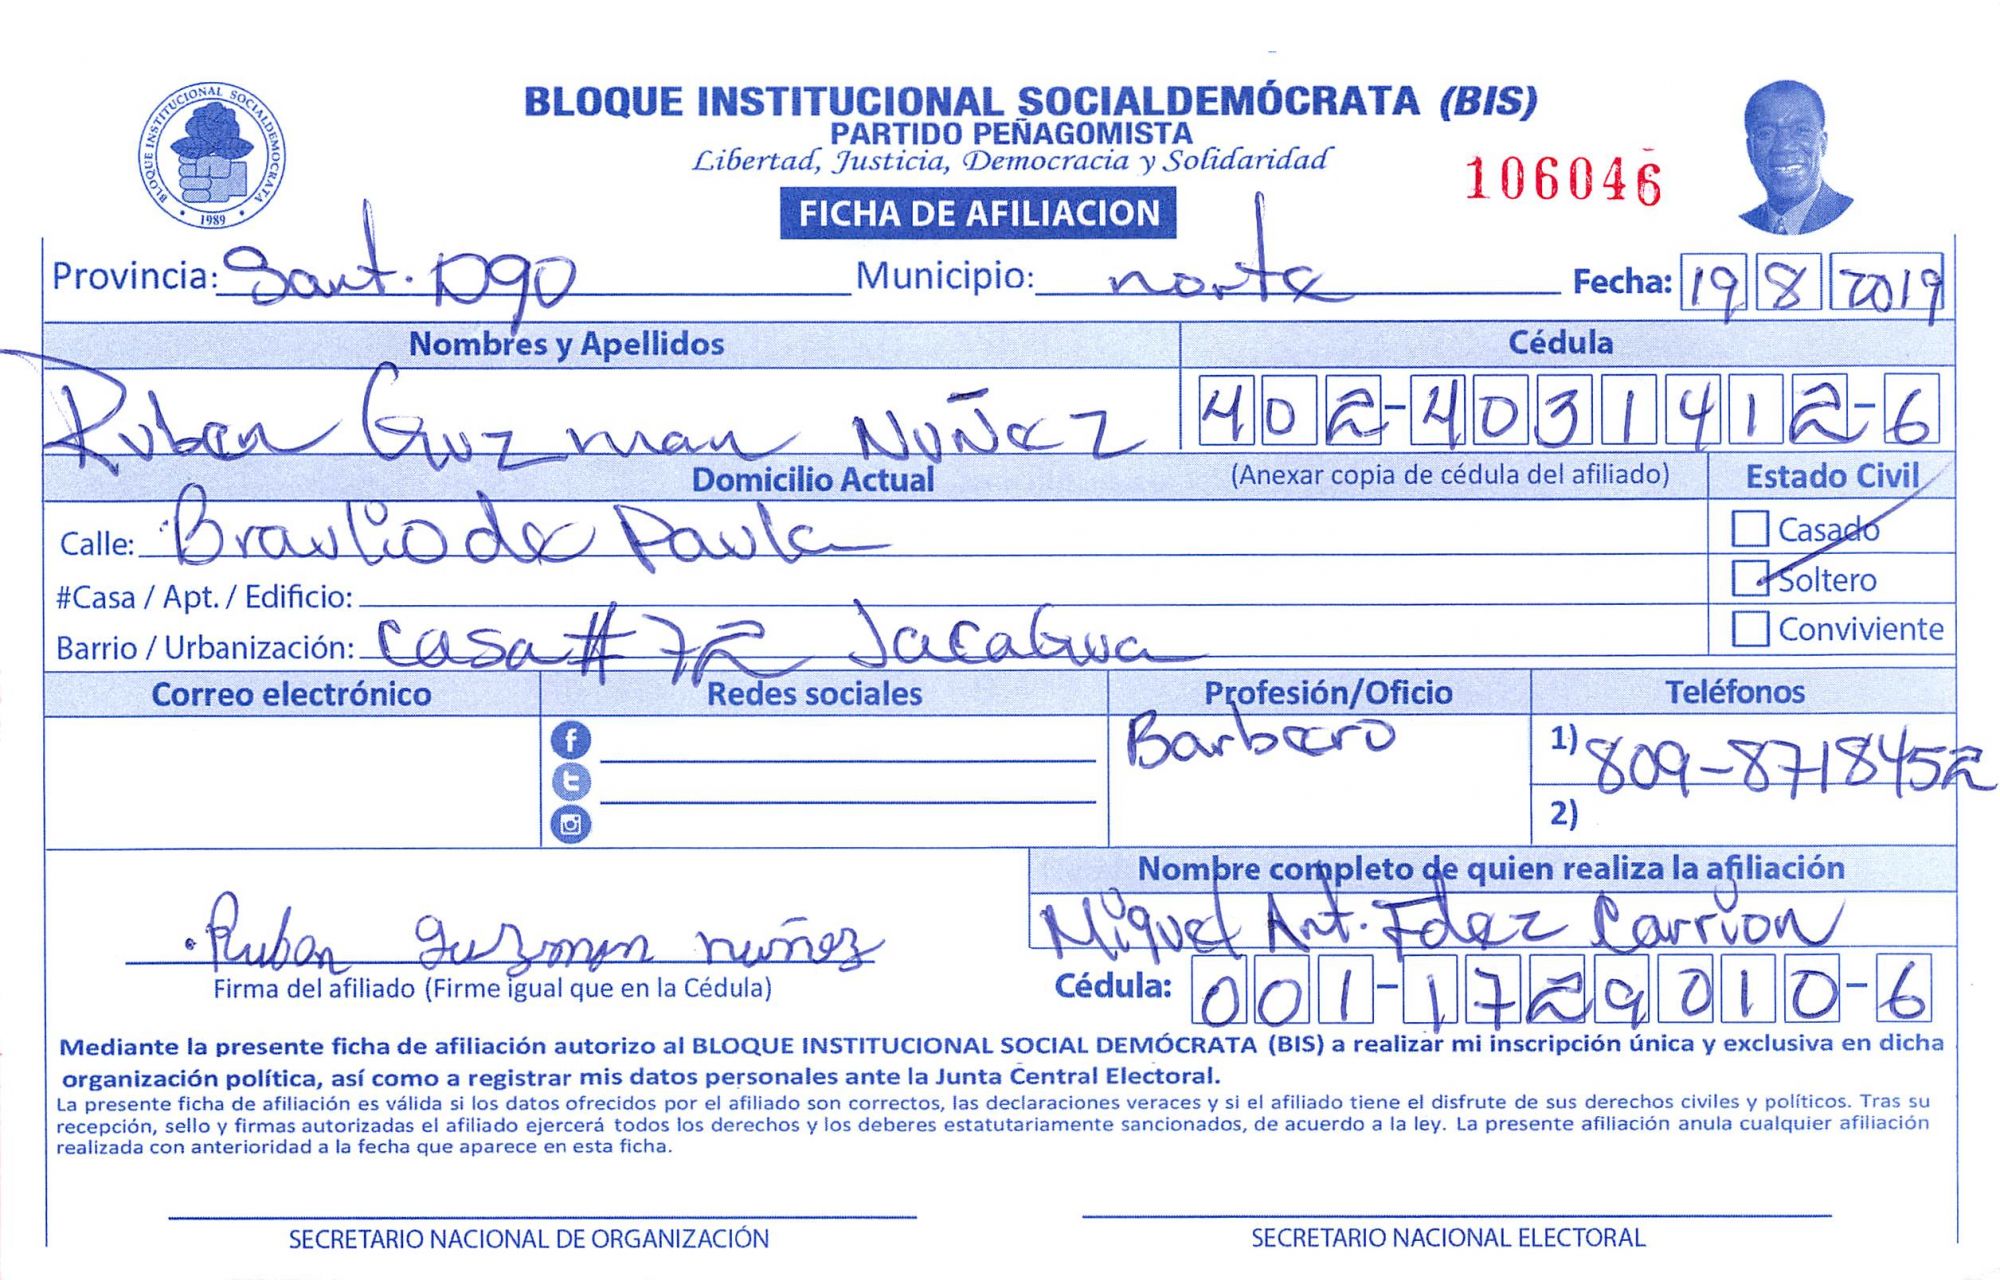 BLOQUE INSTITUCIONAL SOCIALDEMÓCRATA (BIS)
PARTIDO PEÑAGOMISTA
Libertad, Justicia, Democracia y Solidaridad
BLOQUE INSTITUCIONAL SOCIALDEMOCRATA
1989
106046
FICHA DE AFILIACION
Provincia: Sant. Dgo Municipio: norte Fecha: 19 8 2019
Nombres y Apellidos Cédula
Ruben Guzman Nuñez 402-4031412-6
Domicilio Actual (Anexar copia de cédula del afiliado) Estado Civil
Calle: Braulio de Paula Casado
#Casa / Apt. / Edificio: Soltero
Barrio / Urbanización: Casa #72 JacaGua Conviviente
Correo electrónico Redes sociales Profesión/Oficio Teléfonos
Barbero 1) 809-8718452
2)
Nombre completo de quien realiza la afiliación
Miguel Ant. Fdez Carrion
Ruben guzman nuñez
Firma del afiliado (Firme igual que en la Cédula) Cédula: 001-1729010-6
Mediante la presente ficha de afiliación autorizo al BLOQUE INSTITUCIONAL SOCIAL DEMÓCRATA (BIS) a realizar mi inscripción única y exclusiva en dicha
organización política, así como a registrar mis datos personales ante la Junta Central Electoral.
La presente ficha de afiliación es válida si los datos ofrecidos por el afiliado son correctos, las declaraciones veraces y si el afiliado tiene el disfrute de sus derechos civiles y políticos. Tras su
recepción, sello y firmas autorizadas el afiliado ejercerá todos los derechos y los deberes estatutariamente sancionados, de acuerdo a la ley. La presente afiliación anula cualquier afiliación
realizada con anterioridad a la fecha que aparece en esta ficha.
SECRETARIO NACIONAL DE ORGANIZACIÓN SECRETARIO NACIONAL ELECTORAL